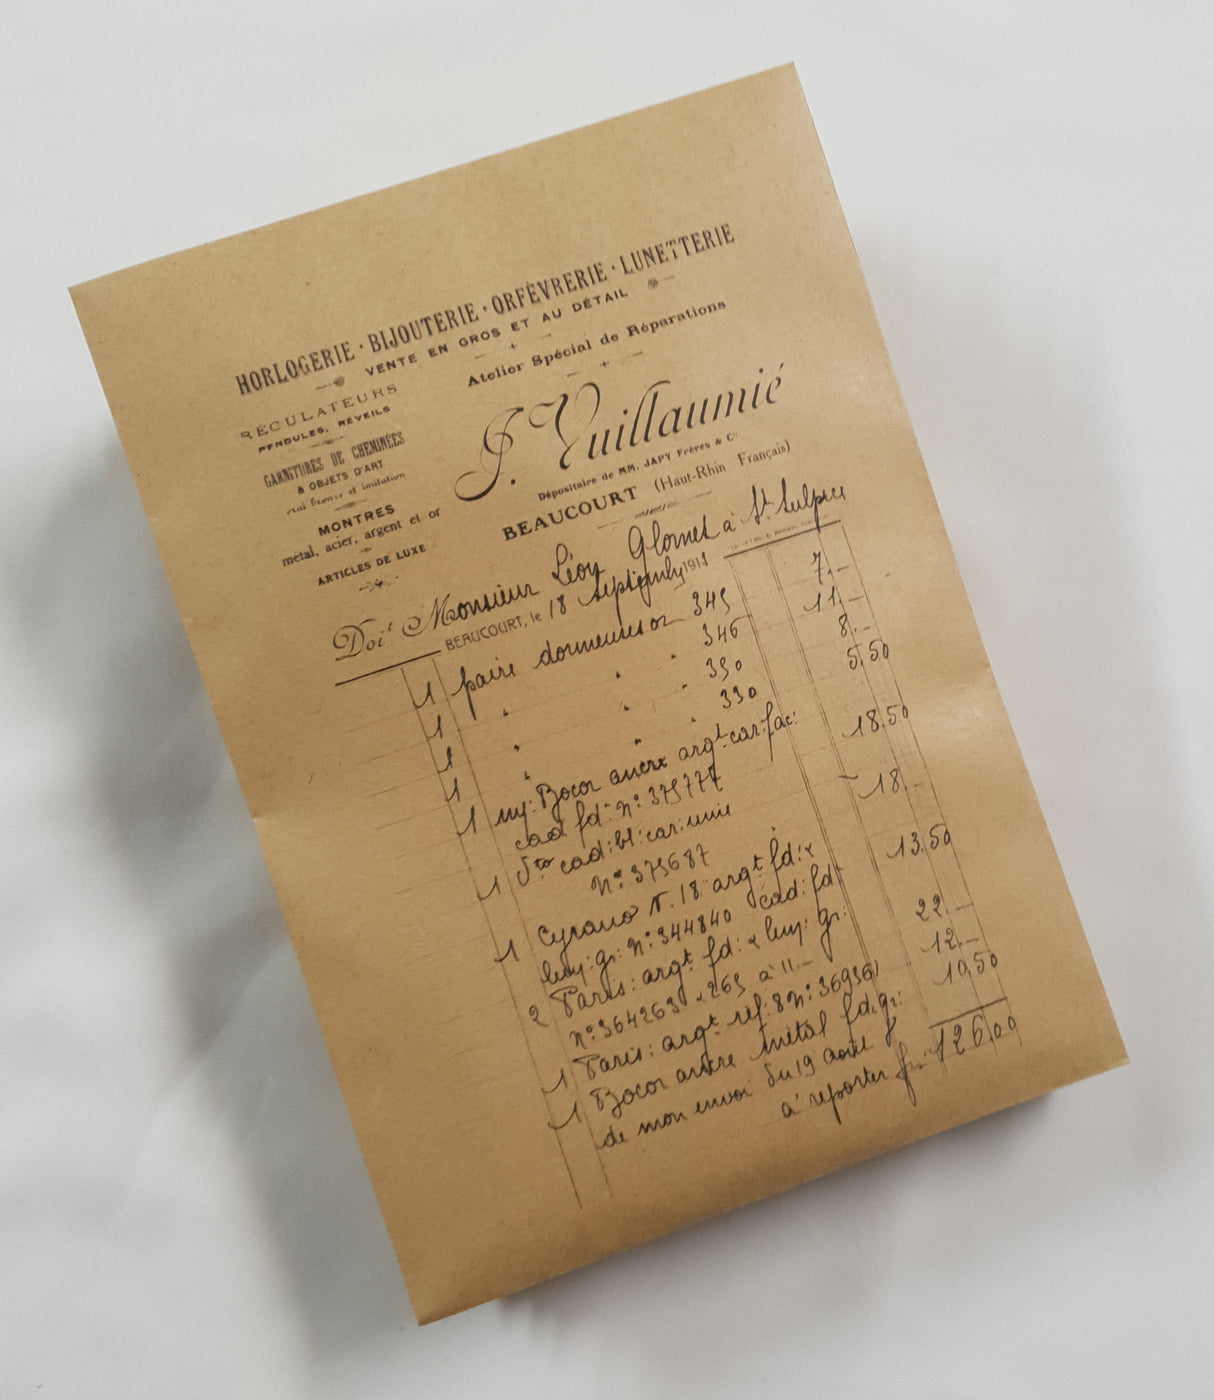 HORLOGERIE · BIJOUTERIE · ORFÈVRERIE · LUNETTERIE
VENTE EN GROS ET AU DÉTAIL
RÉGULATEURS
PENDULES, RÉVEILS
GARNITURES DE CHEMINÉES
& OBJETS D'ART
vrai bronze et imitation
MONTRES
métal, acier, argent et or
ARTICLES DE LUXE
Atelier Spécial de Réparations
J. Vuillaumié
Dépositaire de MM. JAPY Frères & Cie
BEAUCOURT (Haut-Rhin Français)
Doit Monsieur Léon à St Sulpice
BEAUCOURT, le 18 191
1 paire dormeuses or 345 7.-
1 " " " 346 11.-
1 " " " 350 8.-
1 " " " 330 5.50
1 Bocor ancre argt car: fac:
cad fd: No: 375777 18.50
1 dto cad: bl: car: unie
No: 375687 18.-
1 Cyrano N. 18 argt fd: &
gr: No: 344840 cad: fdt 13.50
2 Paris: argt fd: & gr:
No: 364263 & 265 à 11.- 22.-
1 Paris: argt réf: 8 No: 36936 12.-
1 Bocor ancre métal fd: gr: 10.50
de mon envoi du 19 août
à reporter fr: 126.00